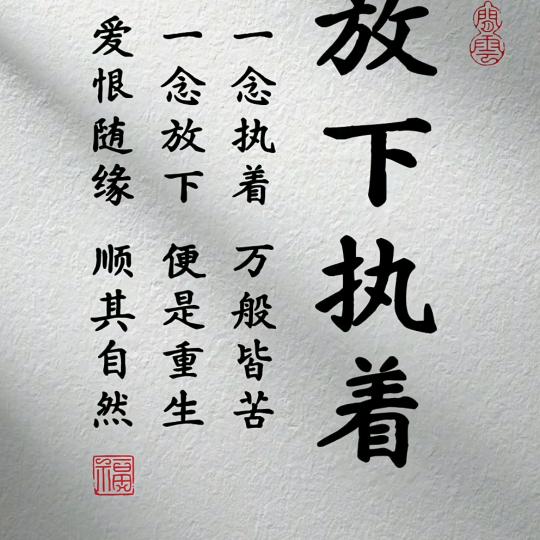 閒雲
放下执着
一念执着 万般皆苦
一念放下 便是重生
爱恨随缘 顺其自然
福